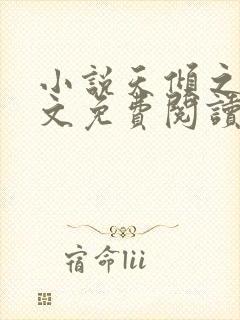 小說天傾之
文免費閱讀
宿命lii